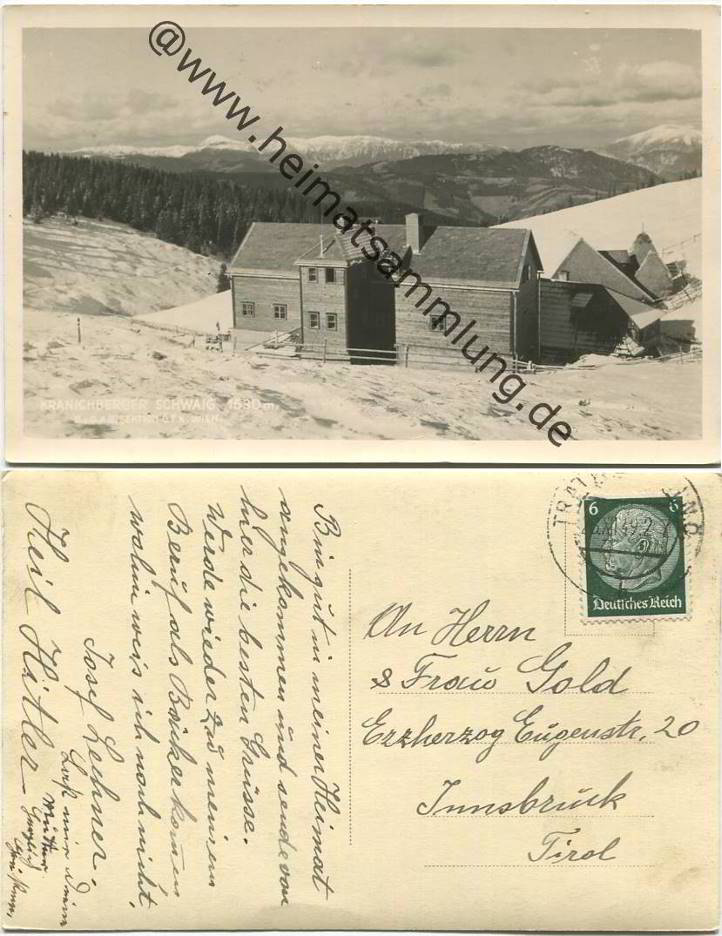 @www.heimatsammlung.de
KRANICHBERGER SCHWAIG 1530 m
WIEN
6 6
Deutsches Reich
Bin gut in meiner Heimat
angekommen und sende von
hier die besten Grüsse.
Werde wieder zu meinem
Beruf als Bäcker kommen
wohin weis ich noch nicht,
Josef Lechner.
Heil Hitler
An Herrn
& Frau Gold
Erzherzog Eugenstr. 20
Innsbruck
Tirol